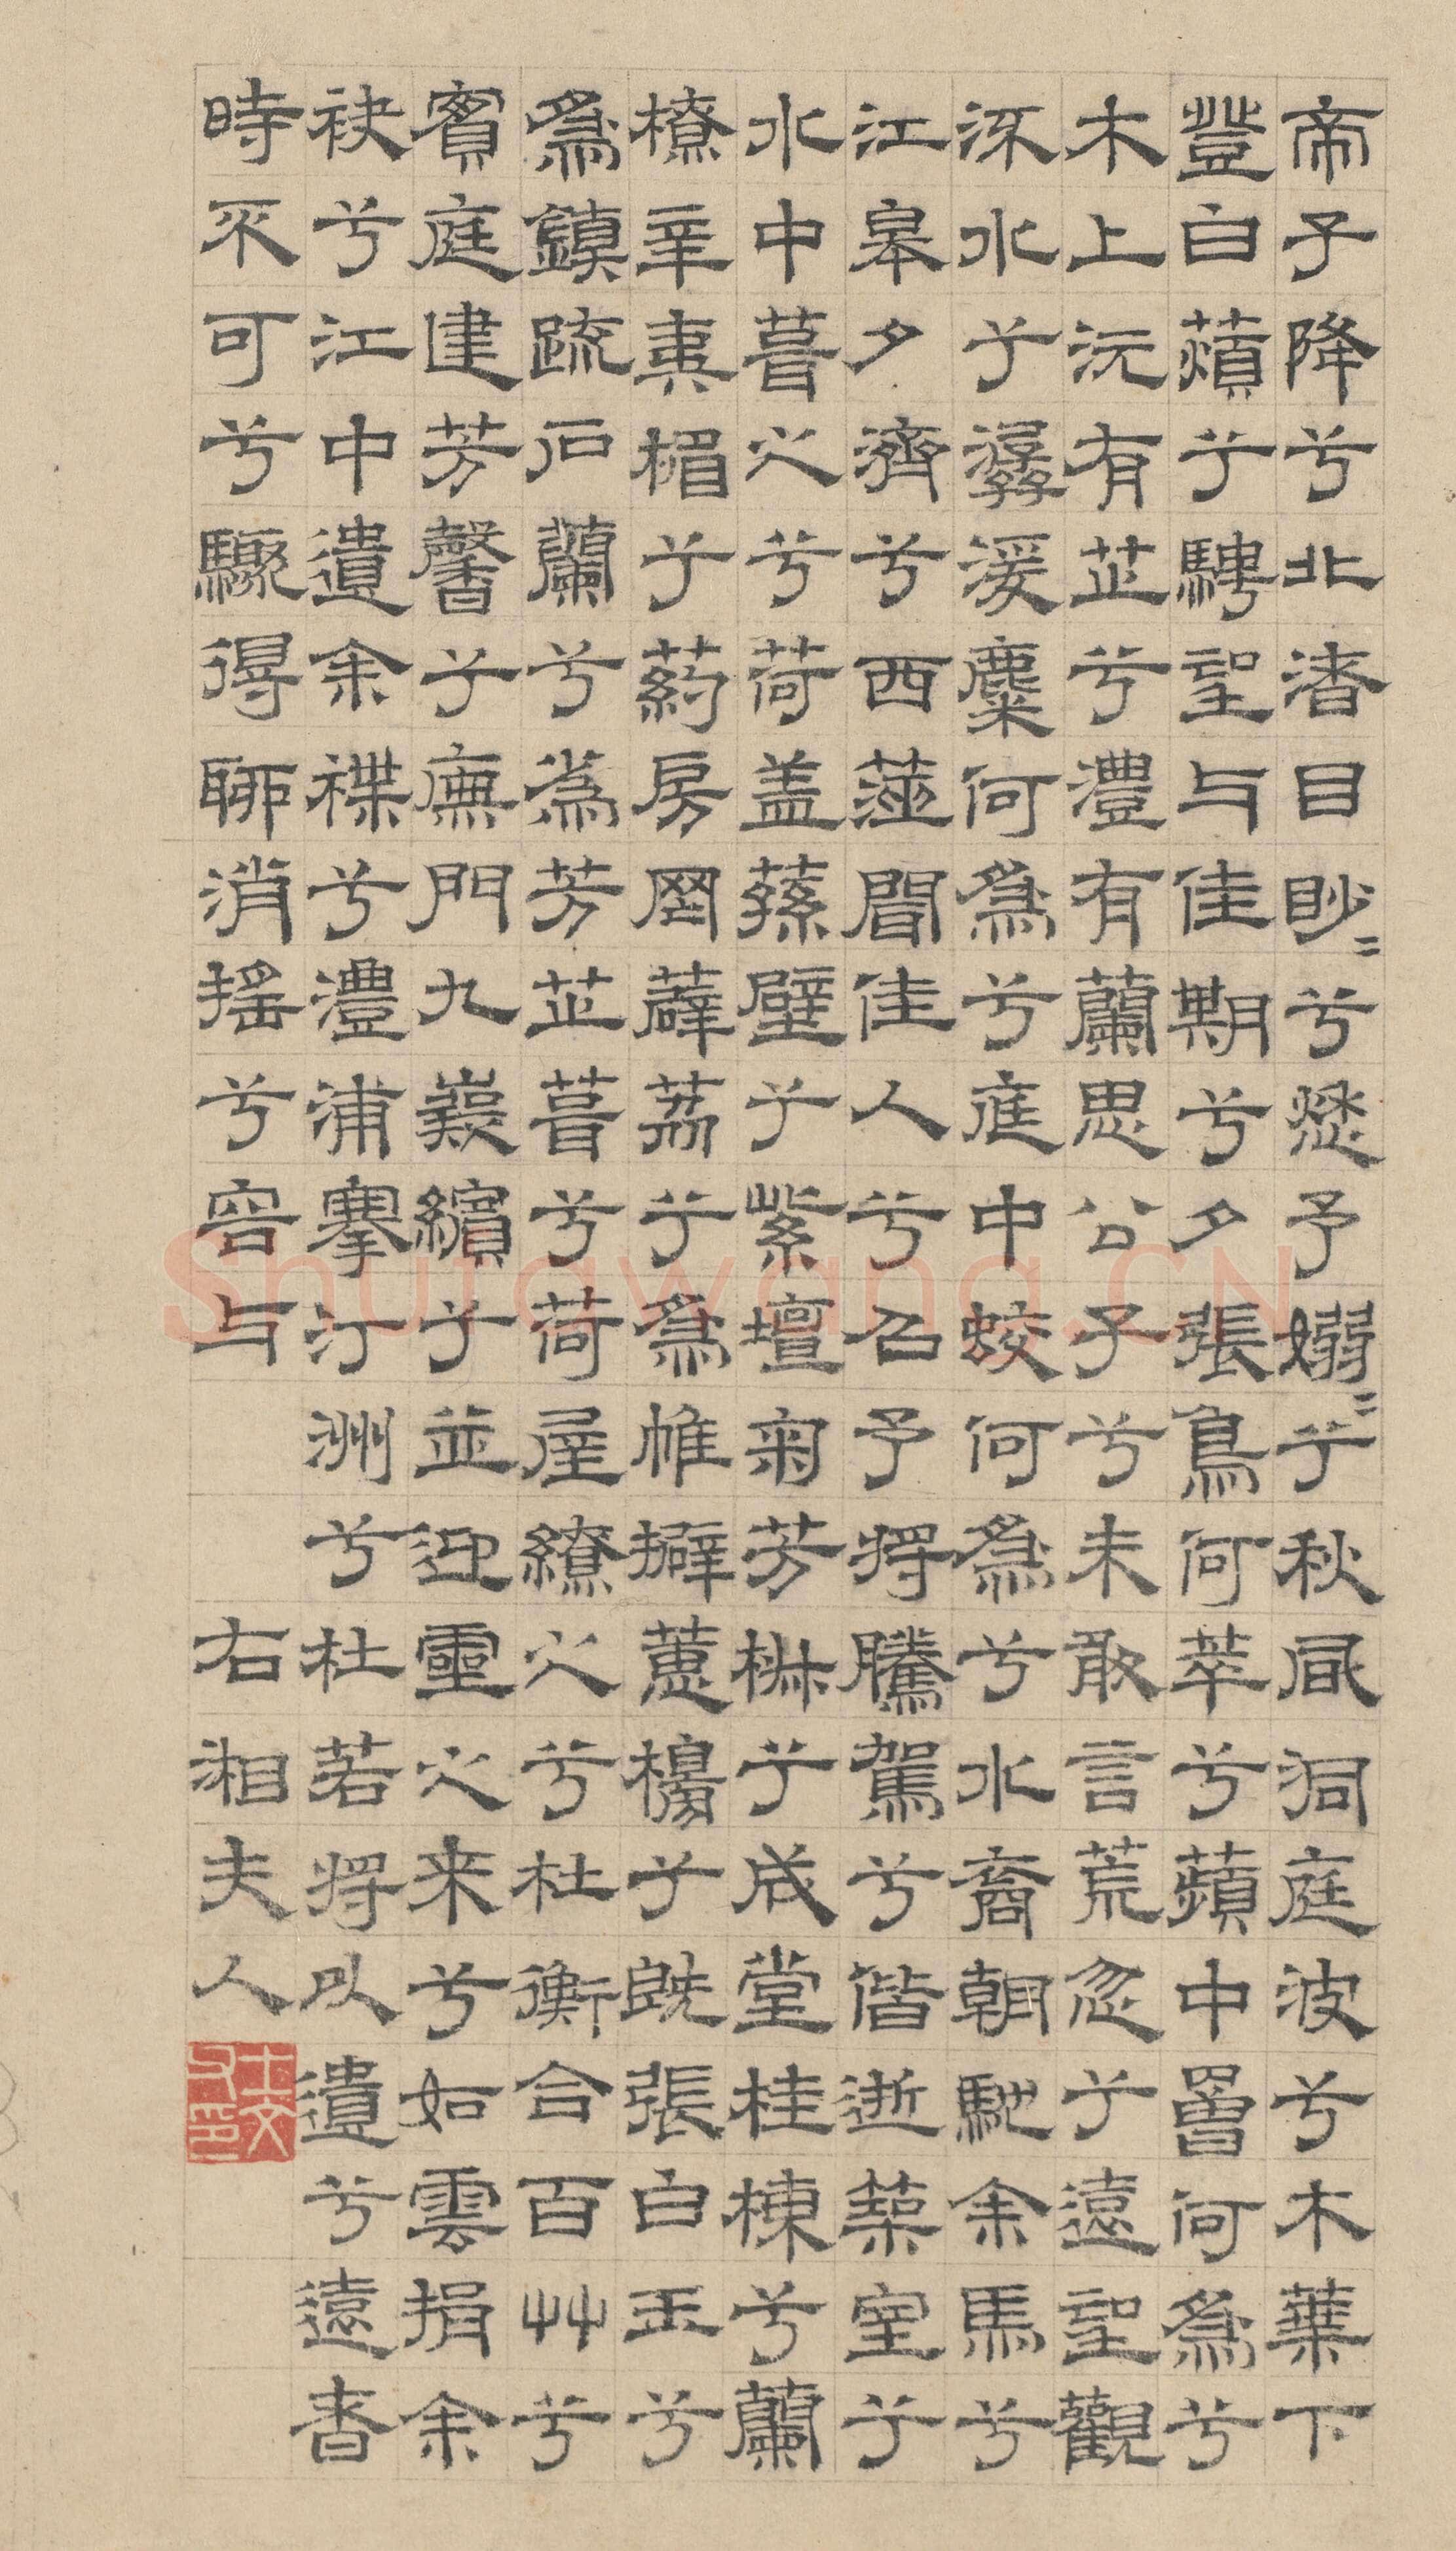 帝子降兮北渚目眇〻兮愁予嫋〻兮秋風洞庭波兮木葉下
登白薠兮騁望与佳期兮夕張鳥何萃兮蘋中罾何爲兮
木上沅有芷兮澧有蘭思公子兮未敢言荒忽兮遠望觀
流水兮潺湲麋何爲兮庭中蛟何爲兮水裔朝馳余馬兮
江皋夕濟兮西澨聞佳人兮召予將騰駕兮偕逝築室兮
水中葺之兮荷盖蓀壁兮紫壇菊芳椒兮成堂桂棟兮蘭
橑辛夷楣兮葯房罔薜荔兮爲帷擗蕙櫋兮既張白玉兮
爲鎮疏石蘭兮爲芳芷葺兮荷屋繚之兮杜衡合百艸兮
實庭建芳馨兮廡門九嶷繽兮並迎靈之来兮如雲捐余
袂兮江中遺余褋兮澧浦搴汀洲兮杜若將以遺兮遠者
時不可兮驟得聊消搖兮容与 右湘夫人
Shufawang.CN